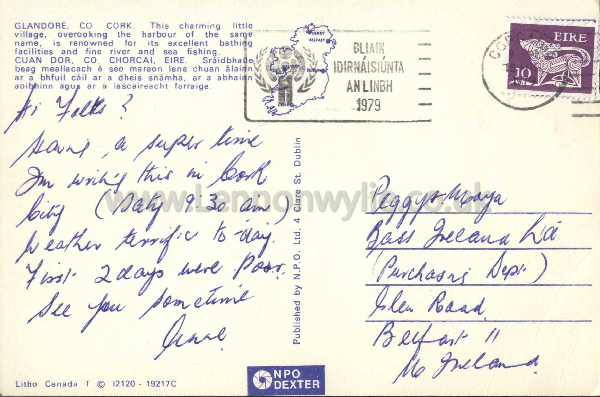 GLANDORE, CO CORK. This charming little
village, overooking the harbour of the same
name, is renowned for its excellent bathing
facilities and fine river and sea fishing.
CUAN DOR, CO. CHORCAI, EIRE. Sráidbhaile
beag meallacach é seo maraon lens chuan álainn
ar a bhfuil cáil ar a dheis snámha, ar a abhainn
aoibhinn agus ar a iascaireacht forraige.
Hi Folks?
Having a super time
I'm writing this in Cork
City (Saty 9:30 am)
Weather terrific to-day.
First 2 days were Poor.
See you sometime
Anne
Litho Canada T © 12120 - 19217C
Published by N.P.O. Ltd., 4 Clare St. Dublin
NPO
DEXTER
BLIAIN
IDIRNÁISIÚNTA
AN LINBH
1979
DERRY
BELFAST
CO
EIRE
10
Peggy + Moya
Bass Ireland Ltd
(Purchasing Dept.)
Glen Road
Belfast 11
N Ireland
www.Lennonwylie.co.uk